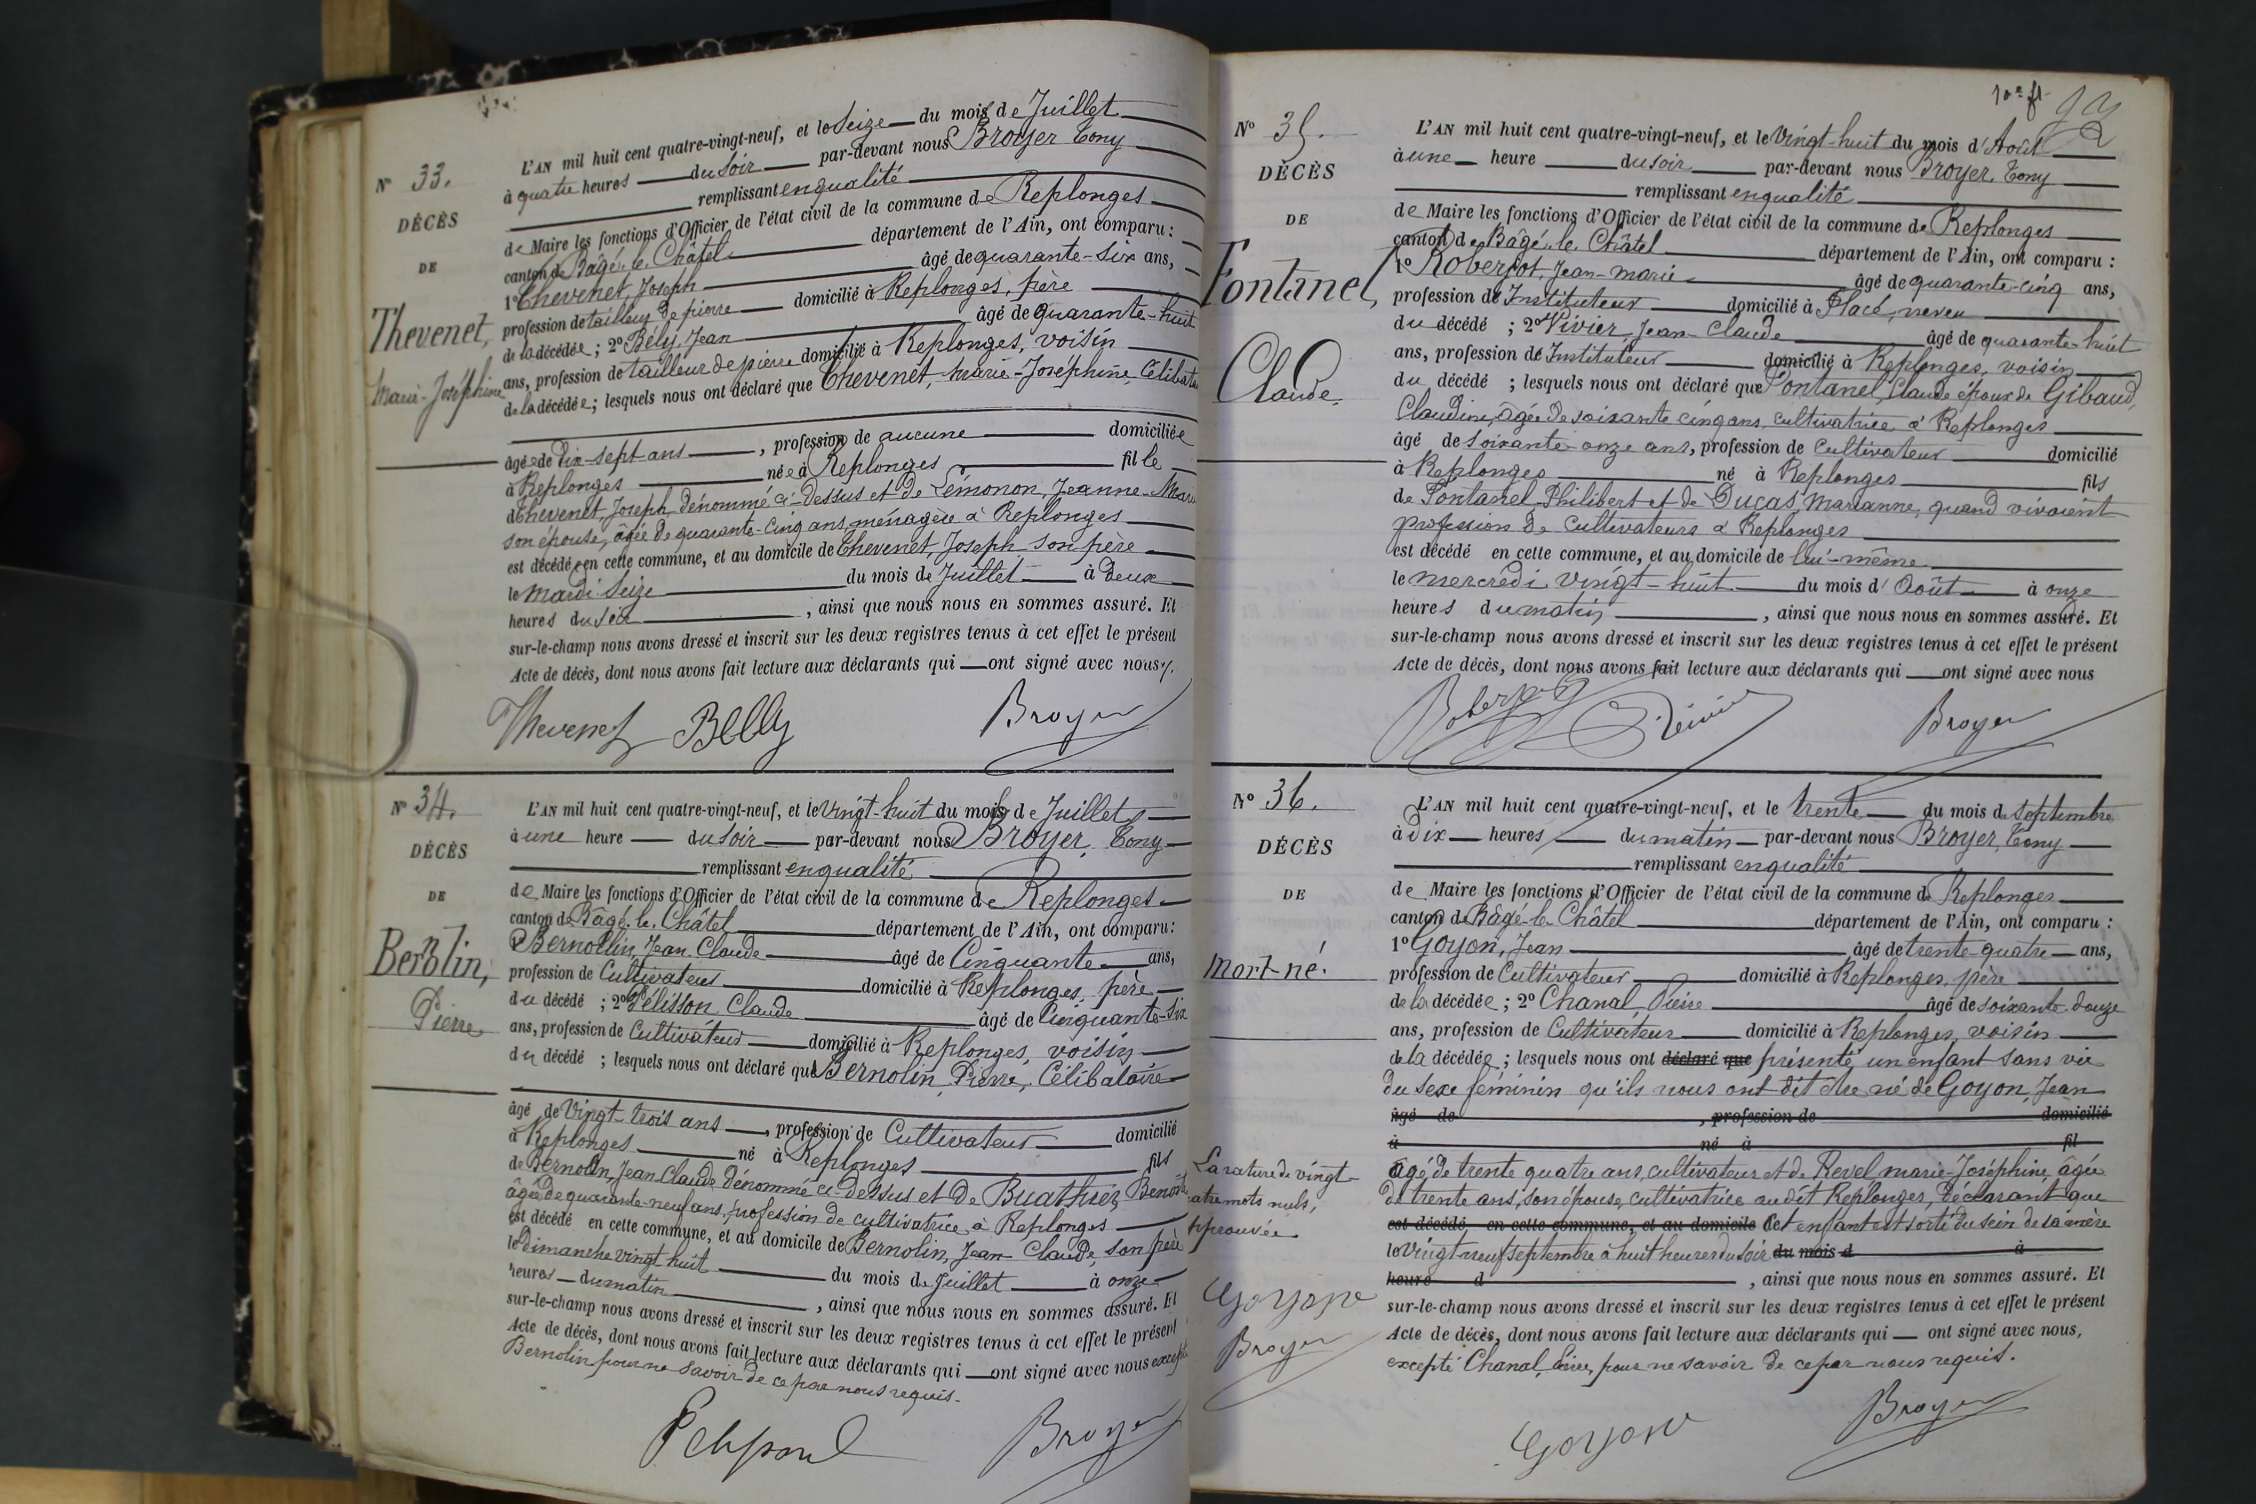 N° 33.
DÉCÈS
DE
Thevenet,
Marie-Joséphine
L'AN mil huit cent quatre-vingt-neuf, et le Seize du mois de Juillet
à quatre heures du Soir par-devant nous Broyer Tony
remplissant en qualité
de Maire les fonctions d'Officier de l'état civil de la commune de Replonges
canton de Bâgé-le-Châtel département de l'Ain, ont comparu :
1° Thevenet, Joseph âgé de quarante-six ans,
profession de tailleur de pierre domicilié à Replonges, père
de la décédée ; 2° Bély, Jean âgé de quarante-huit
ans, profession de tailleur de pierre domicilié à Replonges, voisin
de la décédée ; lesquels nous ont déclaré que Thevenet, Marie-Joséphine, Célibataire
âgée de dix-sept ans, profession de aucune domiciliée
à Replonges née à Replonges fille
de Thevenet, Joseph, dénommé ci-dessus et de Lémonon, Jeanne-Marie
son épouse, âgée de quarante-cinq ans, ménagère à Replonges
est décédée en cette commune, et au domicile de Thevenet, Joseph son père
le mardi Seize du mois de Juillet à deux
heures du soir, ainsi que nous nous en sommes assuré. Et
sur-le-champ nous avons dressé et inscrit sur les deux registres tenus à cet effet le présent
Acte de décès, dont nous avons fait lecture aux déclarants qui ont signé avec nous.
Thevenet Belly Broyer
N° 34.
DÉCÈS
DE
Bernolin,
Pierre
L'AN mil huit cent quatre-vingt-neuf, et le Vingt-huit du mois de Juillet
à une heure du soir par-devant nous Broyer, Tony
remplissant en qualité
de Maire les fonctions d'Officier de l'état civil de la commune de Replonges
canton de Bâgé-le-Châtel département de l'Ain, ont comparu :
1° Bernolin, Jean Claude âgé de Cinquante ans,
profession de Cultivateur domicilié à Replonges, père
du décédé ; 2° Pélisson Claude âgé de Cinquante-six
ans, profession de Cultivateur domicilié à Replonges, voisin
du décédé ; lesquels nous ont déclaré que Bernolin, Pierre, Célibataire
âgé de Vingt-trois ans, profession de Cultivateur domicilié
à Replonges né à Replonges fils
de Bernolin, Jean Claude dénommé ci-dessus et de Buathier, Benoîte
âgée de quarante-neuf ans, profession de cultivatrice, à Replonges
est décédé en cette commune, et au domicile de Bernolin, Jean-Claude, son père
le dimanche vingt huit du mois de Juillet à onze
heures du matin, ainsi que nous nous en sommes assuré. Et
sur-le-champ nous avons dressé et inscrit sur les deux registres tenus à cet effet le présent
Acte de décès, dont nous avons fait lecture aux déclarants qui ont signé avec nous excepté
Bernolin pour ne savoir de ce par nous requis.
Broyer
N° 35.
DÉCÈS
DE
Fontanel,
Claude.
L'AN mil huit cent quatre-vingt-neuf, et le Vingt-huit du mois d'Août
à une heure du soir par-devant nous Broyer, Tony
remplissant en qualité
de Maire les fonctions d'Officier de l'état civil de la commune de Replonges
canton de Bâgé-le-Châtel département de l'Ain, ont comparu :
1° Roberjot, Jean-Marie âgé de quarante-cinq ans,
profession de Instituteur domicilié à Placé, neveu
du décédé ; 2° Vivier, Jean-Claude âgé de quarante-huit
ans, profession de Instituteur domicilié à Replonges, voisin
du décédé ; lesquels nous ont déclaré que Fontanel Claude époux de Gibaud,
Claudine, âgée de soixante cinq ans, cultivatrice à Replonges
âgé de soixante-onze ans, profession de Cultivateur domicilié
à Replonges né à Replonges fils
de Fontanel, Philibert et de Ducas, Marianne, quand vivaient
profession de cultivateurs à Replonges
est décédé en cette commune, et au domicile de lui-même
le mercredi vingt-huit du mois d'Août à onze
heures du matin, ainsi que nous nous en sommes assuré. Et
sur-le-champ nous avons dressé et inscrit sur les deux registres tenus à cet effet le présent
Acte de décès, dont nous avons fait lecture aux déclarants qui ont signé avec nous
Roberjot Vivier Broyer
N° 36.
DÉCÈS
DE
Mort-né.
L'AN mil huit cent quatre-vingt-neuf, et le trente du mois de septembre
à Dix heures du matin par-devant nous Broyer, Tony
remplissant en qualité
de Maire les fonctions d'Officier de l'état civil de la commune de Replonges
canton de Bâgé-le-Châtel département de l'Ain, ont comparu :
1° Goyon, Jean âgé de trente-quatre ans,
profession de Cultivateur domicilié à Replonges, père
de la décédée ; 2° Chanal, Pierre âgé de soixante-douze
ans, profession de Cultivateur domicilié à Replonges, voisin
de la décédée ; lesquels nous ont déclaré que présenté un enfant sans vie
du sexe féminin qu'ils nous ont dit être né de Goyon, Jean
âgé de , profession de domicilié
à né à fil
âgé de trente quatre ans, cultivateur et de Revel marie-Joséphine, âgée
de trente ans, son épouse, cultivatrice au dit Replonges, déclarant que
est décédé, en cette commune, et au domicile Cet enfant est sorti du sein de sa mère
le Vingt-neuf septembre à huit heures du soir du mois d à
heure d , ainsi que nous nous en sommes assuré. Et
sur-le-champ nous avons dressé et inscrit sur les deux registres tenus à cet effet le présent
Acte de décès, dont nous avons fait lecture aux déclarants qui ont signé avec nous,
excepté Chanal, Pierre, pour ne savoir de ce par nous requis.
La rature de vingt-
quatre mots nuls,
approuvée
Goyon
Broyer
Goyon Broyer